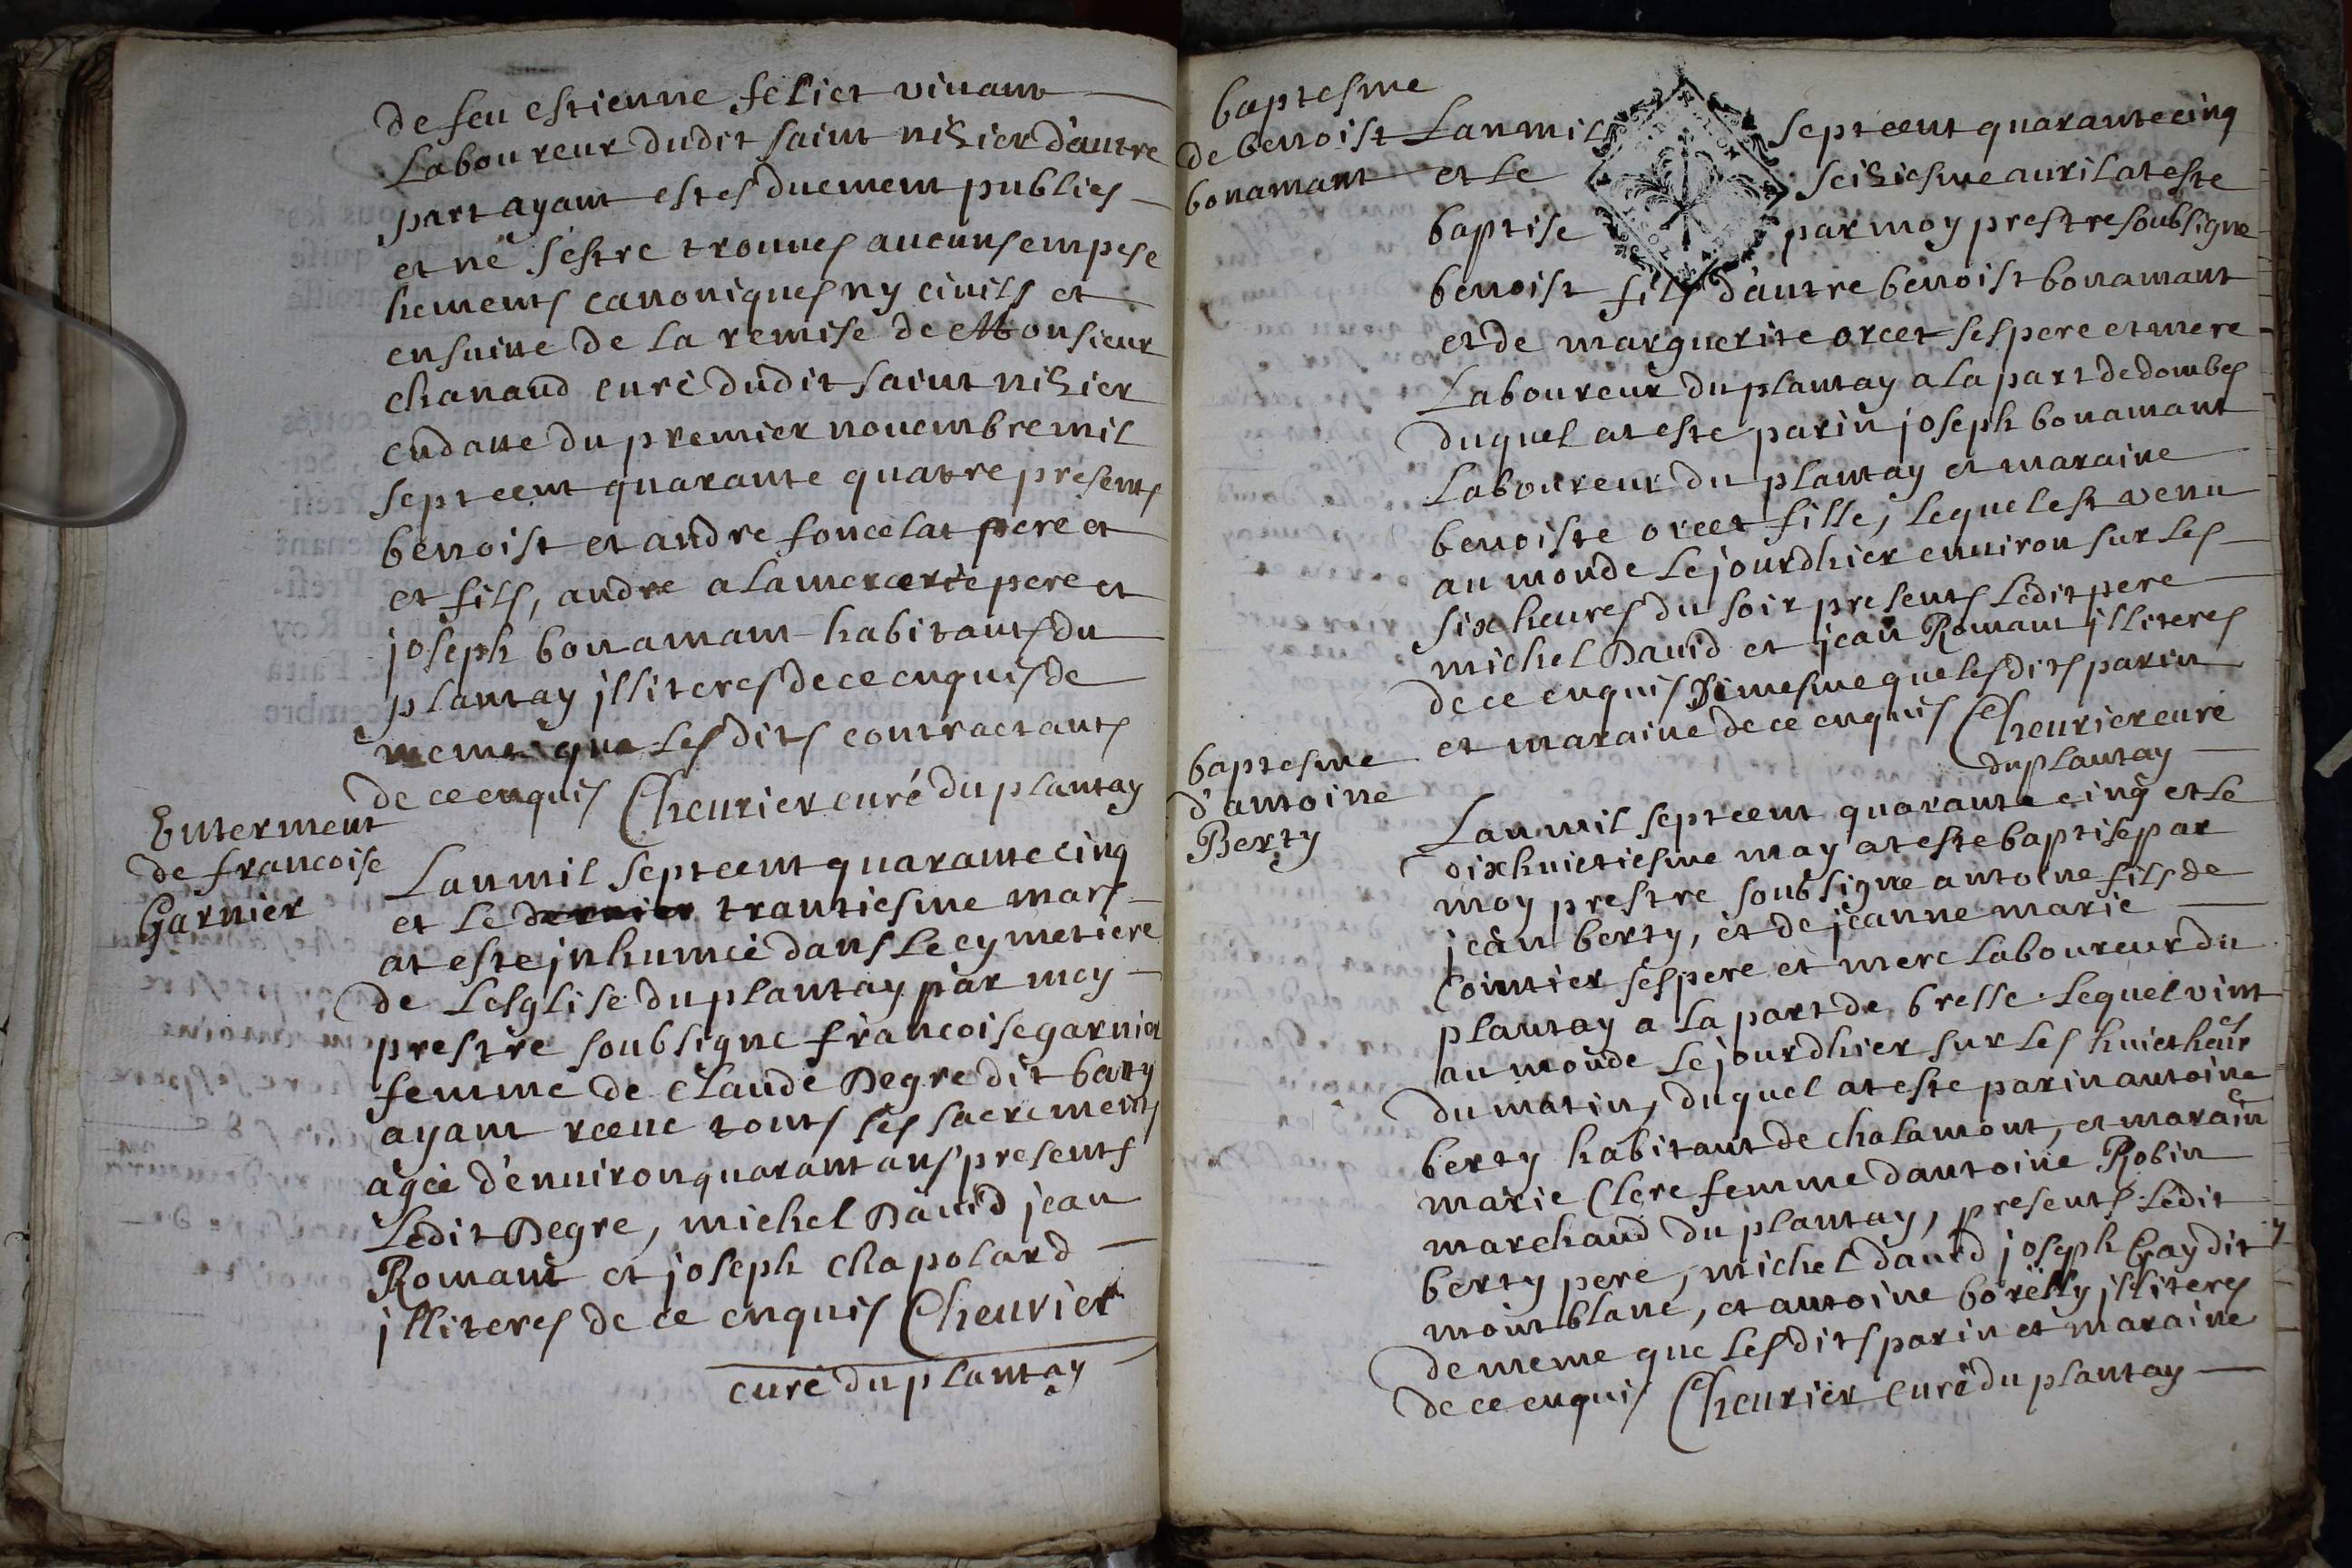 de feu estienne feliet vivant
Laboureur dudit saint nizier d'autre
part ayant estes duement publies
et ne s'estre trouves aucuns empesc
hements canoniques ny civils et
ensuitte de la remise de Monsieur
chanaud curé dudit saint nizier
endatte du premier novembre mil
sept cent quarante quatre presents
benoist et andre foncelat pere et
et fils, andre alamercerie pere et
joseph bonamant habitants du
plantay jlliteres de ce enquis de
meme que lesdits contractants
de ce enquis Chevrier curé du plantay
Enterment
de francoise
Garnier
Lanmil sept cent quarante cinq
et le dernier trantiesme mars
at este jnhumeé dans le cymetiere
de Lesglise du plantay par moy
prestre soubsigne francoise garnier
femme de claude Degre dit betty
ayant receue touts les sacrements
agée d'environ quarant ans presents
Ledit Degre, michel David jean
Romant et joseph chapolard
jlliteres de ce enquis Chevrier
curé du plantay
baptesme
de benoist
bonamant
Lanmil sept cent quarante cinq
et le seiziesme avril at este
baptise par moy prestre soubsigne
benoist fils d'autre benoist bonamant
et de marguerite orcet ses pere et mere
Laboureur du plantay a la part de dombes
duquel at este parin joseph bonamant
Laboureur du plantay et maraine
benoiste orcet fille, lequel est venu
au monde le jourdhier environ sur les
six heures du soir presents ledit pere
michel David et jean Romant jlliteres
de ce enquis de mesme que lesdits parin
et maraine de ce enquis Chevrier curé
du plantay
baptesme
d'antoine
Berty
Lanmil sept cent quarante cinq et le
dixhuictiesme may at este baptise par
moy prestre soubsigne antoine fils de
jean berty, et de jeanne marie
Cointier ses pere et mere laboureur du
plantay a la part de bresse. lequel vint
au monde le jourdhier sur les huict heur
du matin, duquel at este parin antoine
berty habitant de chalamont, et marain
marie Clere femme dantoine Robin
marchand du plantay, presents ledit
berty pere, michel david joseph Gay dit
montblanc, et antoine borelly jlliteres
de meme que lesdits parin et maraine
de ce enquis Chevrier curé du plantay